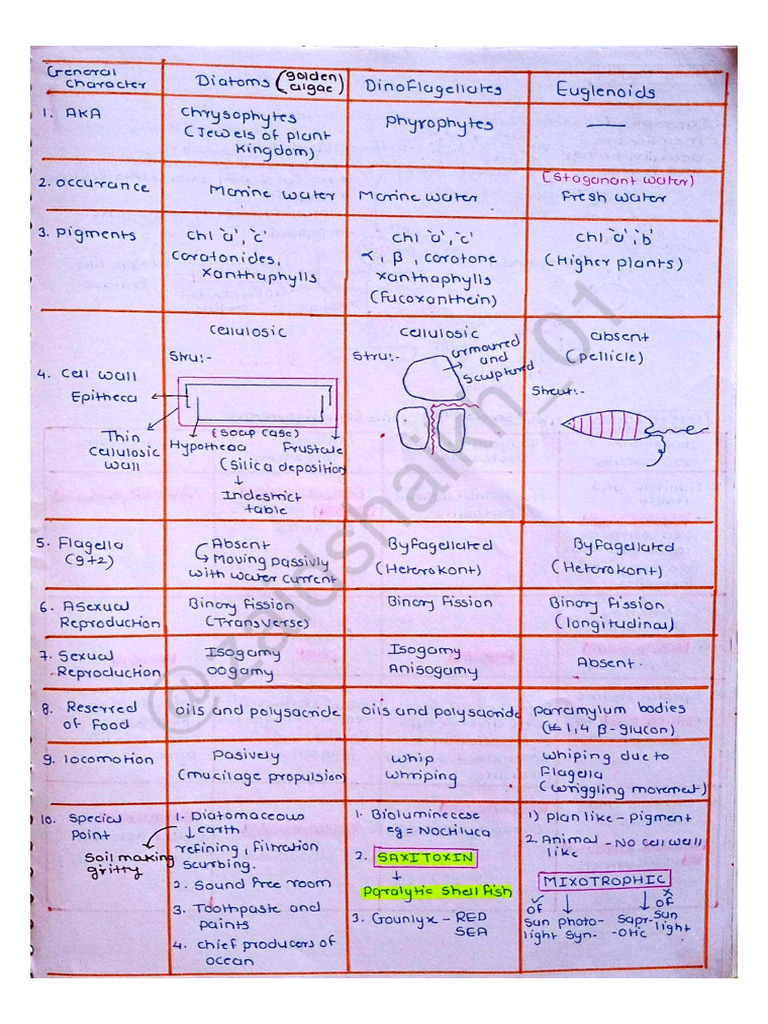 General Character
Diatoms (golden algae)
Dinoflagellates
Euglenoids
1. AKA
Chrysophytes
(Jewels of plant
Kingdom)
Phyrophytes
—
2. occurance
Marine water
Marine water
(Staganant water)
Fresh water
3. Pigments
chl 'a', 'c'
Carotonides,
xanthaphylls
Chl 'a', 'c'
α, β, carotone
xanthaphylls
(Fucoxanthein)
Chl 'a', 'b'
(Higher plants)
4. Cell wall
Cellulosic
Stru:-
Epitheca
Thin
cellulosic
wall
(Soap case)
Hypothecа
Frustale
(Silica deposition)
Indestrict
table
Cellulosic
Stru:-
armoured
and
sculptured
absent
(pellicle)
Struct:-
5. Flagella
(9+2)
Absent
Moving passivly
with water current
Byfagellated
(Heterokont)
Byfagellated
(Heterokont)
6. Asexual
Reproduction
Binary fission
(Transverse)
Binary fission
Binary fission
(longitudinal)
7. Sexual
Reproduction
Isogamy
oogamy
Isogamy
Anisogamy
Absent.
8. Reserred
of Food
oils and polysacride
oils and polysacride
Paramylum bodies
1,4 β-glucon)
9. locomotion
Pasively
(mucilage propulsion)
whip
whriping
whiping due to
Flagella
(wriggling movement)
10. Special
Point
1. Diatomaceous
earth
Soil making
gritty
refining, filtration
scurbing.
2. Sound free room
3. Toothpaste and
paints
4. chief producers of
ocean
1. Bioluminecese
eg = Nochiluca
2. SAXITOXIN
Paralytic Shell fish
3. Gounlyx - RED
SEA
1) Plan like - pigment
2. Animal - No cell wall
like
MIXOTROPHIC
of
Sun
light
photo-
Syn-
Sapr-
-otic
of
Sun
light
@zaidshaikh_01